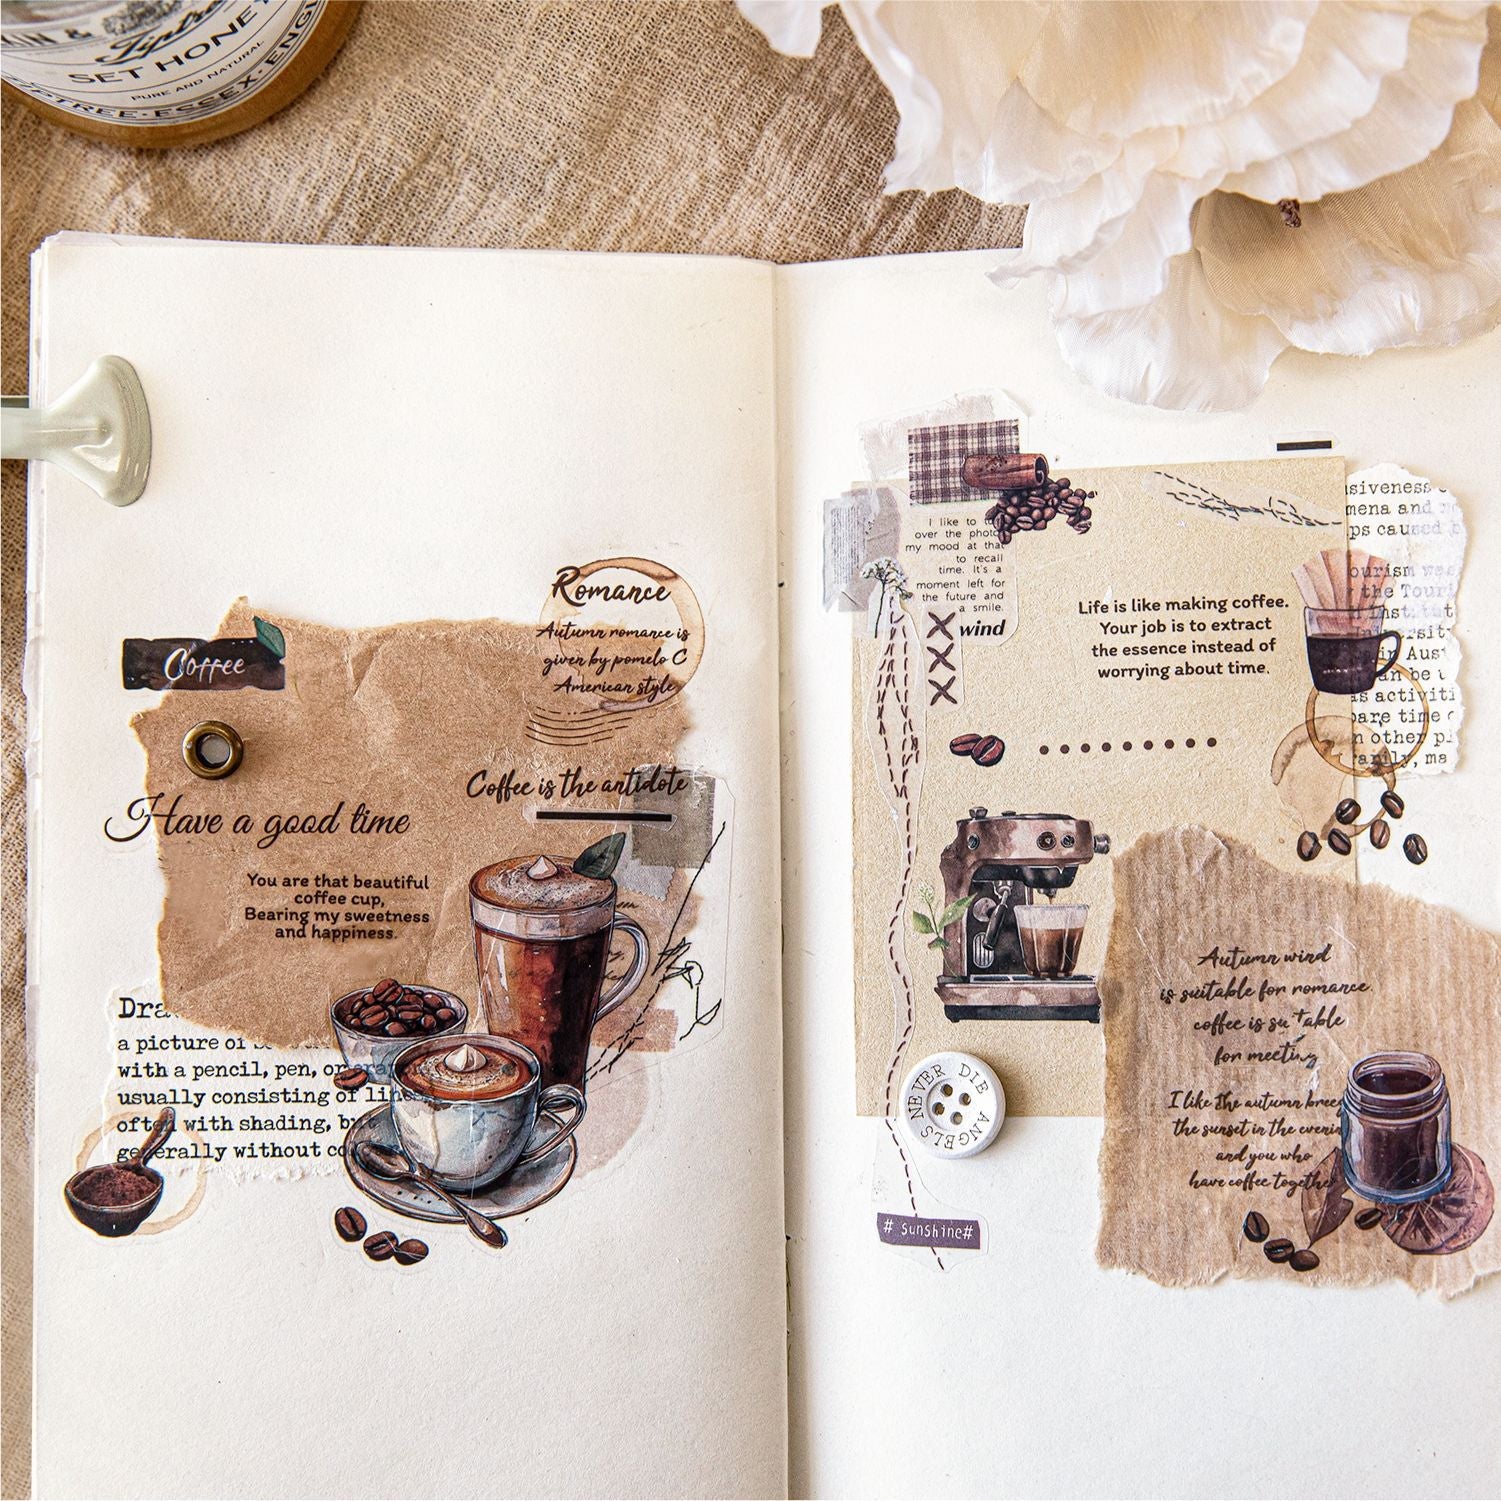 SET HONEY
PURE AND NATURAL
PTREE · ESSEX · ENGL
Romance
Autumn romance is
given by pomelo C
American style
Coffee
Coffee is the antidote
Have a good time
You are that beautiful
coffee cup,
Bearing my sweetness
and happiness.
Dra
a picture of
with a pencil, pen, or
usually consisting of lin
often with shading, but
generally without co
I like to
over the photo
my mood at that
to recall
time. It's a
moment left for
the future and
a smile.
wind
XXX
Life is like making coffee.
Your job is to extract
the essence instead of
worrying about time.
siveness
mena and
ps caused
ourism
the Touri
Aust
can be
as activiti
pare time
n other pl
rarily, ma
Autumn wind
is suitable for romance.
coffee is suitable
for meeting
I like the autumn breez
the sunset in the evenin
and you who
have coffee together
ANGELS NEVER DIE
# sunshine#